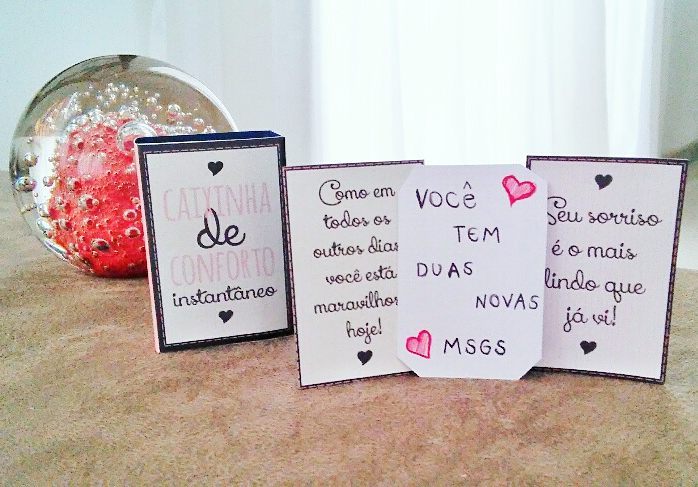 CAIXINHA
de
CONFORTO
instantâneo
Como em
todos os
outros dias
você está
maravilhos
hoje!
VOCÊ
TEM
DUAS
NOVAS
MSGS
Seu sorriso
é o mais
lindo que
já vi!